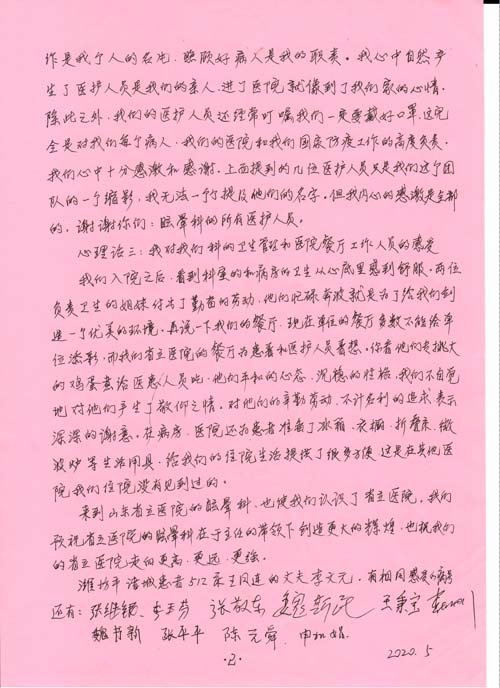 作是我个人的名片，照顾好病人是我的职责。我心中自然产
生了医护人员是我们的亲人，进了医院就像到了我们家的心情。
除此之外，我们的医护人员还经常叮嘱我们一定要戴好口罩，这完
全是对我们每个病人，我们的医院和我们国家防疫工作的高度负责。
我们心中十分感激和感谢。上面提到的几位医护人员只是我们这个团
队的一个缩影，我无法一个个提及他们的名字。但我内心的感激是全部
的，谢谢你们：眩晕科的所有医护人员。
心理话三：我对我们科的卫生管理和医院餐厅工作人员的感受
我们入院之后，看到科室的和病房的卫生从心底里感到舒服。两位
负责卫生的姐妹付出了勤奋的劳动，他们忙碌奔波就是为了给我们创
造一个优美的环境。再说一下我们的餐厅，现在单位的餐厅多数不能给单
位添彩，而我们省立医院的餐厅为患者和医护人员着想。你看他们专挑大
的鸡蛋煮给医患人员吃，他们平和的心态，沉稳的性格，我们不自觉
地对他们产生了敬仰之情。对他们的辛勤劳动，不计名利的追求表示
深深的谢意。在病房，医院还为患者准备了冰箱，衣橱，折叠床，微
波炉等生活用具，给我们的住院生活提供了很多方便，这是在其他医
院我们住院没有见到过的。
来到山东省立医院的眩晕科，也使我们认识了省立医院。我们
预祝省立医院的眩晕科在于主任的带领下创造更大的辉煌，也祝我们
的省立医院走向更高，更远，更强。
潍坊市诸城患者512床王凤连的丈夫李文元。有相同感受的病号
还有：张继锁、李玉芬 张敬东 魏新民 王秉宝
魏书新 张平平 陈元舜 申如娟
·2·
2020.5